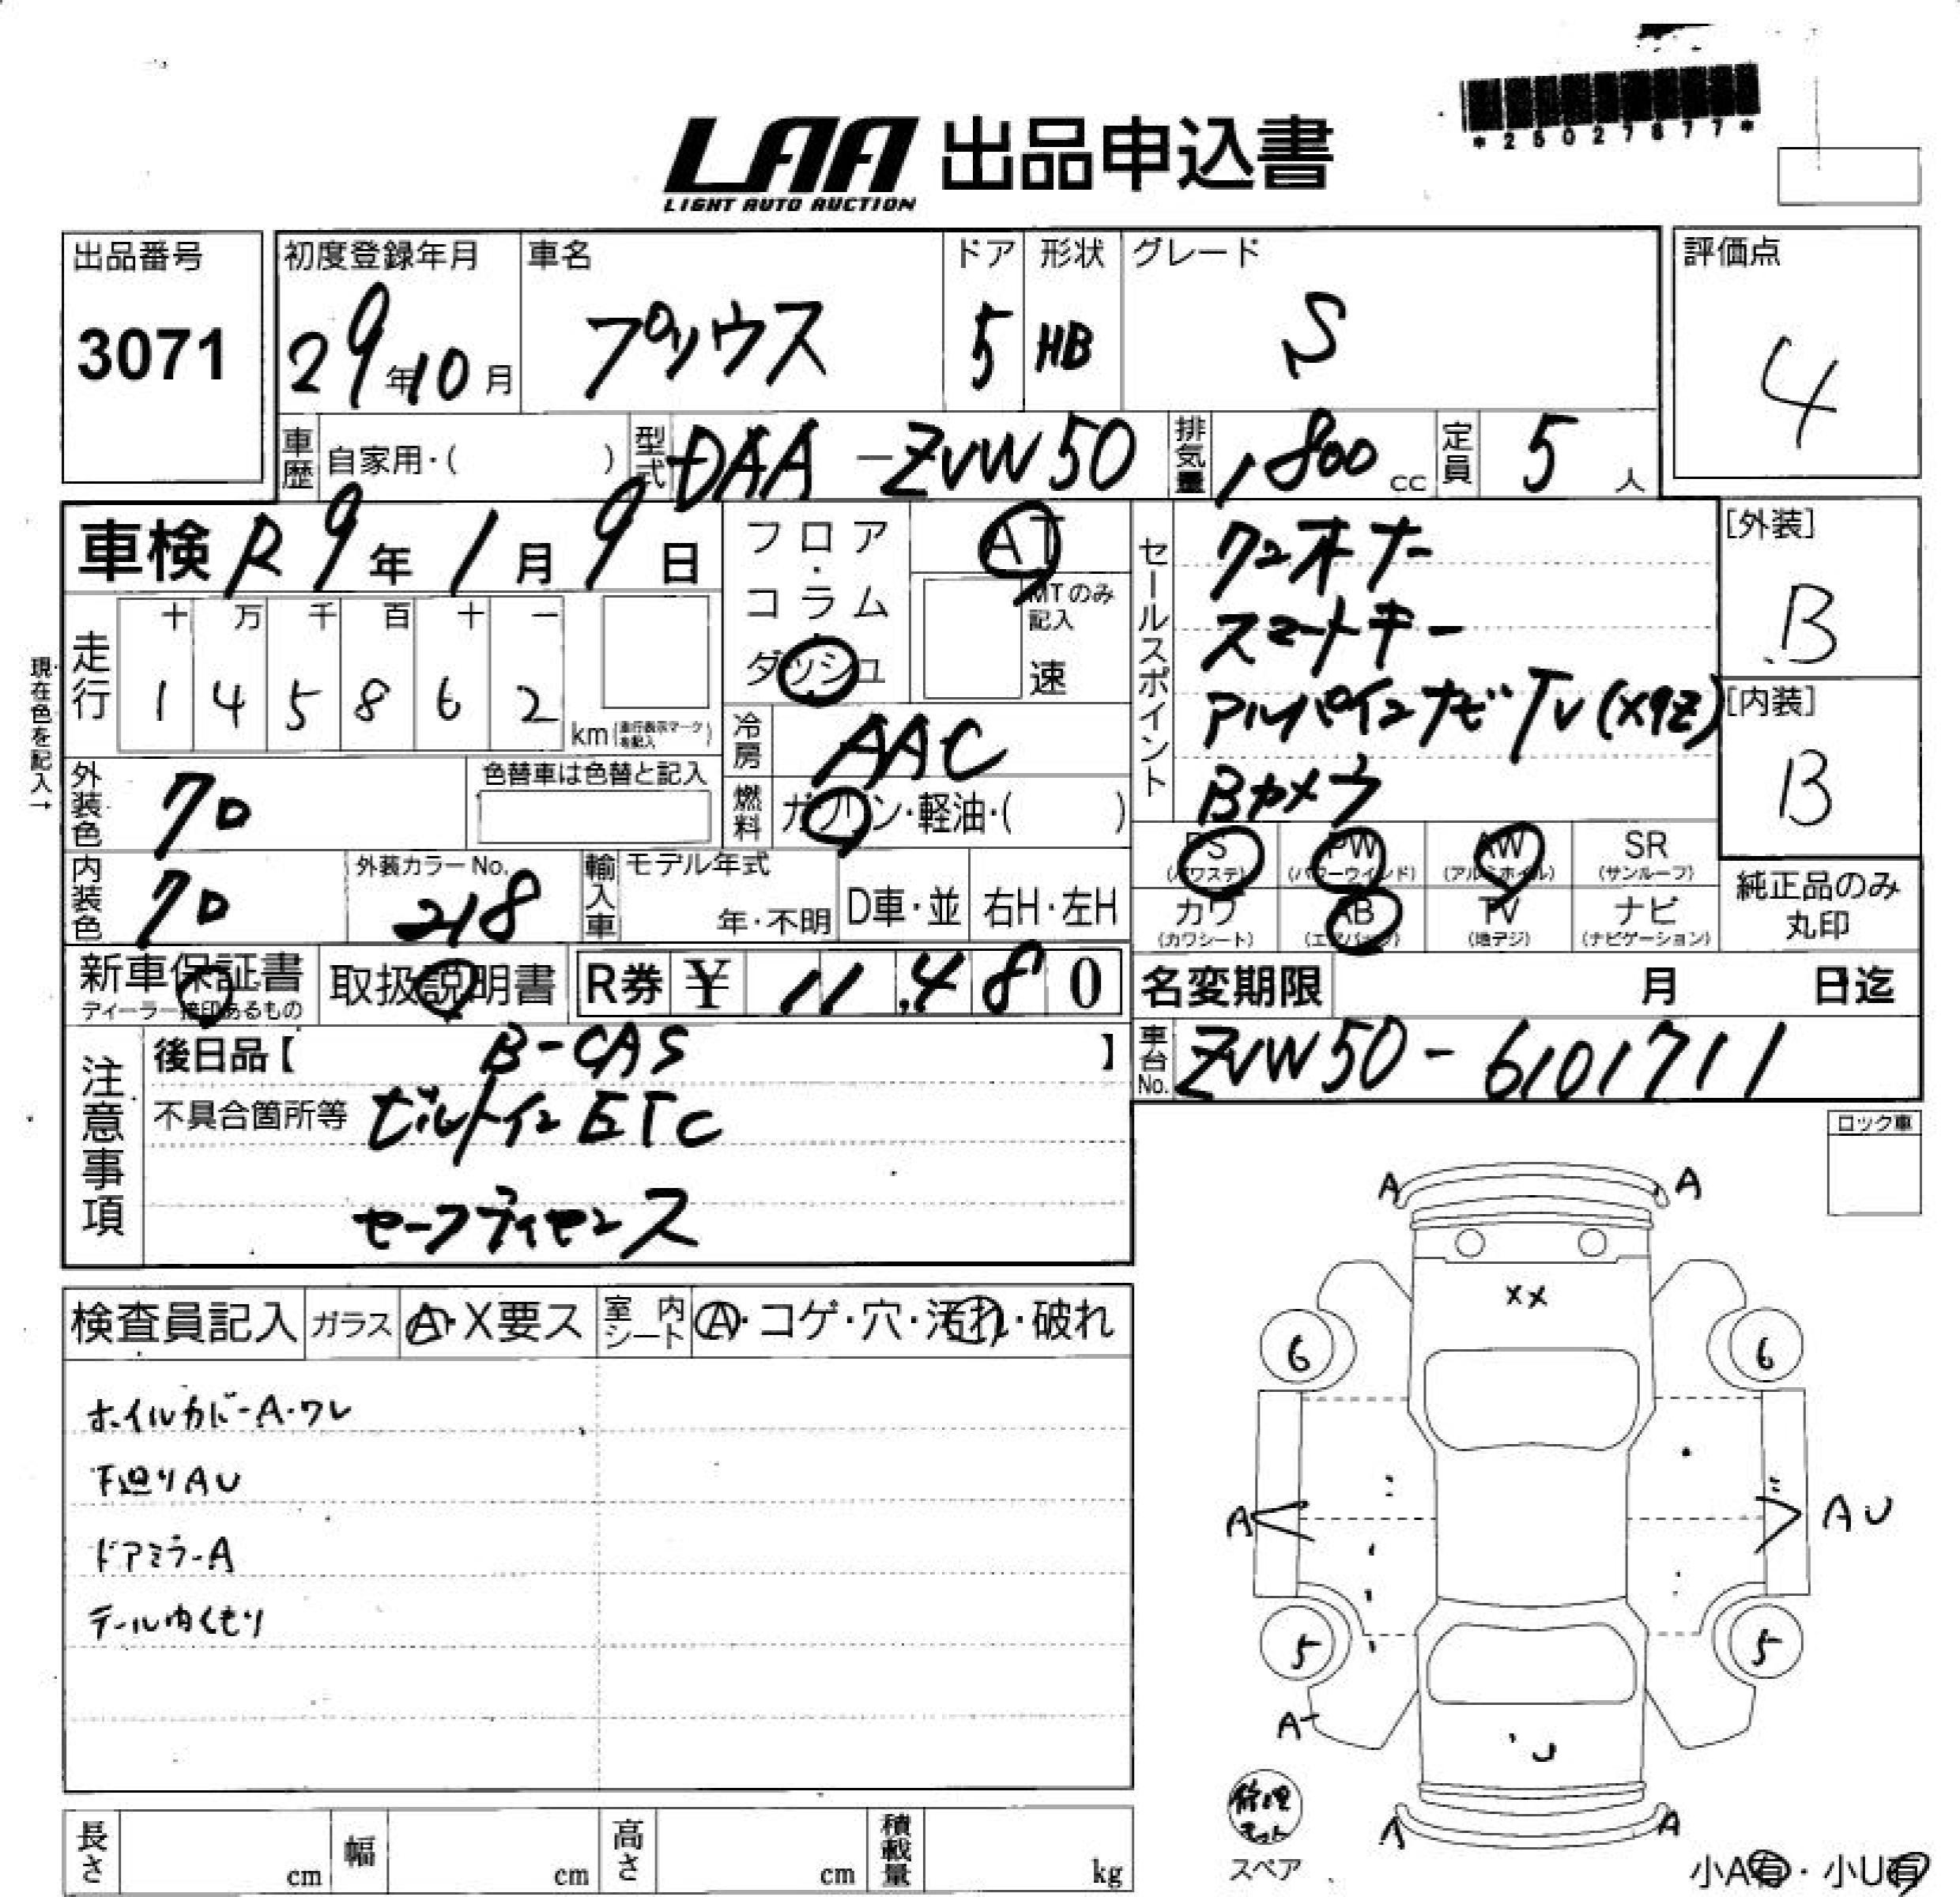 *25027877*
LAA 出品申込書
LIGHT AUTO AUCTION
出品番号
3071
初度登録年月
29年10月
車名
プリウス
ドア
5
形状
HB
グレード
S
評価点
4
車歴
自家用・( )
型式
DAA-ZVW50
排気量
1800cc
定員
5人
車検 R9年1月9日
フロア・コラム・ダッシュ
AT
MTのみ記入
速
セールスポイント
ワンオーナー
スマートキー
アルパインナビTV(X9Z)
Bカメラ
[外装]
B
[内装]
B
現在色を記入→
走行
十 万 千 百 十 一
1 4 5 8 6 2
km(走行表示マークを記入)
冷房
AAC
燃料
ガソリン・軽油・( )
外装色
クロ
色替車は色替と記入
内装色
クロ
外装カラーNo.
218
輸入車
モデル年式
年・不明
D車・並
右H・左H
PS (パワステ)
PW (パワーウインド)
AW (アルミホイル)
SR (サンルーフ)
カワ (カワシート)
AB (エアバッグ)
TV (地デジ)
ナビ (ナビゲーション)
純正品のみ丸印
新車保証書
ディーラー捺印あるもの
取扱説明書
R券 ¥ 11,480
名変期限 月 日迄
車台No.
ZVW50-6101711
注意事項
後日品【 B-CAS 】
不具合箇所等 ビルトインETC
セーフティセンス
ロック車
検査員記入
ガラス
A・X要ス
室内シート
A・コゲ・穴・汚れ・破れ
ホイルカバーA・ワレ
下廻りAU
ドアミラーA
テール内くもり
A A
XX
6 6
A AU
5 5
A
U
A A
修理キット
スペア
小A有・小U有
長さ cm
幅 cm
高さ cm
積載量 kg